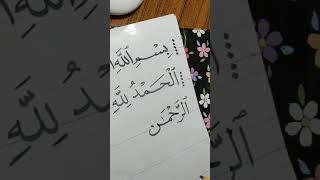 بِسْمِ اللَّهِ
اَلْحَمْدُ لِلَّهِ
الرَّحْمٰنِ